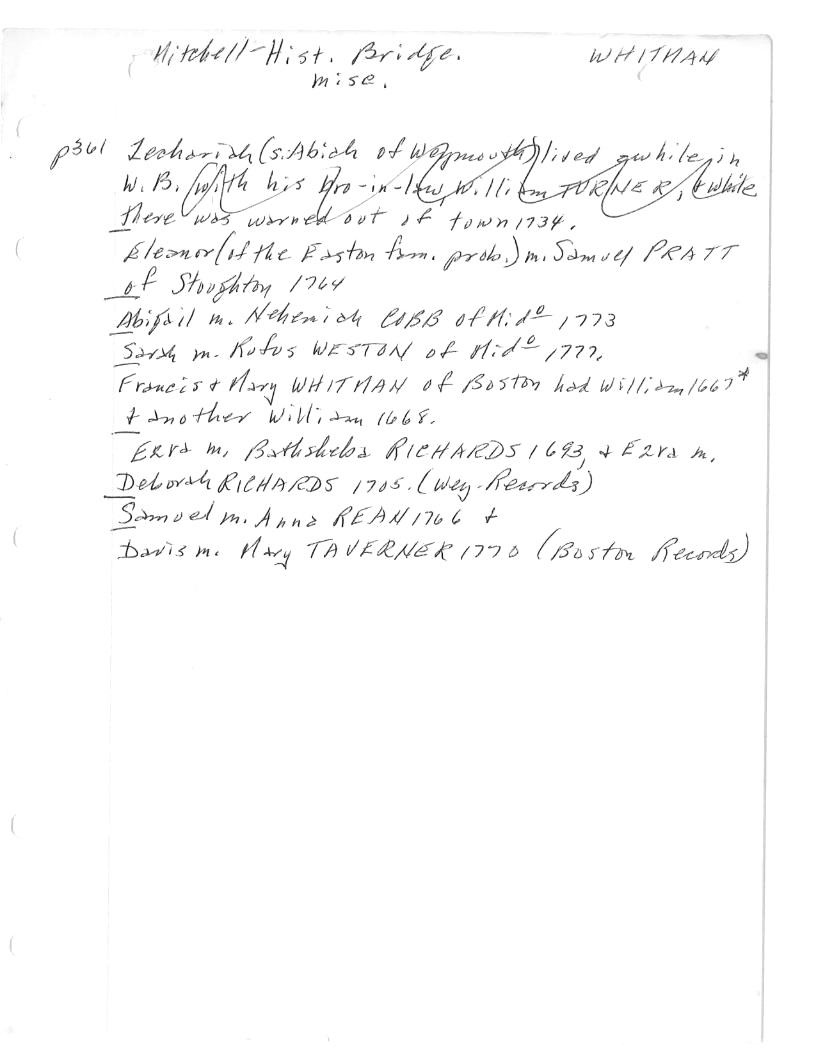 Mitchell-Hist. Bridge. WHITMAN
misc.
p361 Zechariah (s. Abiah of Weymouth) lived awhile in
W.B. with his bro-in-law, William TURNER, & while
there was warned out of town 1734.
Eleanor (of the Easton fam. prob.) m. Samuel PRATT
of Stoughton 1764
Abigail m. Nehemiah COBB of Mido 1773
Sarah m. Rufus WESTON of Mido 1777.
Francis & Mary WHITMAN of Boston had William 1667*
& another William 1668.
Ezra m. Bathsheba RICHARDS 1693, & Ezra m.
Deborah RICHARDS 1705. (Wey-Records)
Samuel m. Anna REAN 1766 &
Davis m. Mary TAVERNER 1770 (Boston Records)